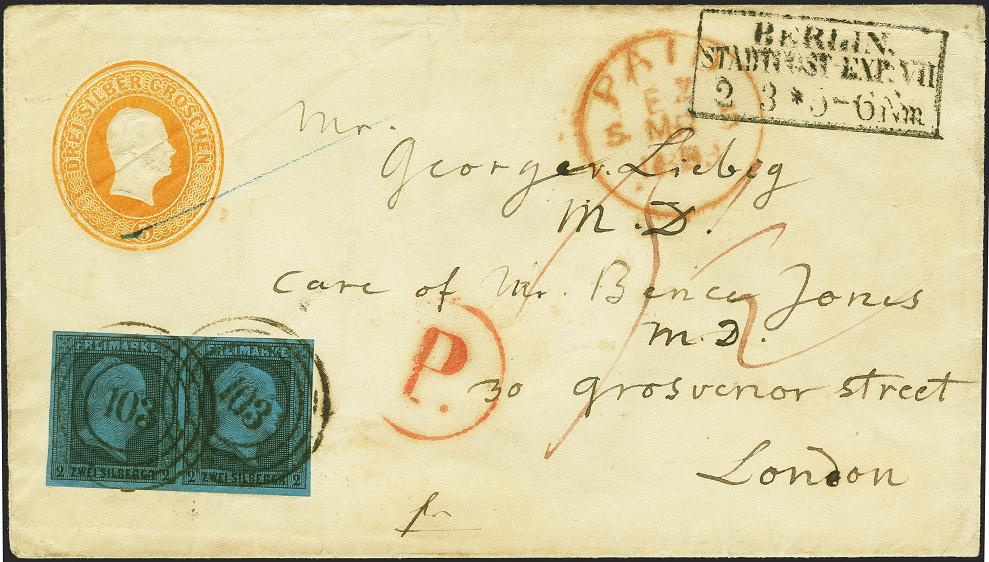 DREI SILBER GROSCHEN
3
BERLIN.
STADTPOST-EXP. VII
2 3 * 5-6 Nm
PAID
Mr.
George v. Liebig
M.D.
Care of Mr. Bence Jones
M.D.
30 Grosvenor street
London
P.
FREIMARKE
103
2 ZWEI SILBERGR 2
FREIMARKE
103
2 ZWEI SILBERGR 2